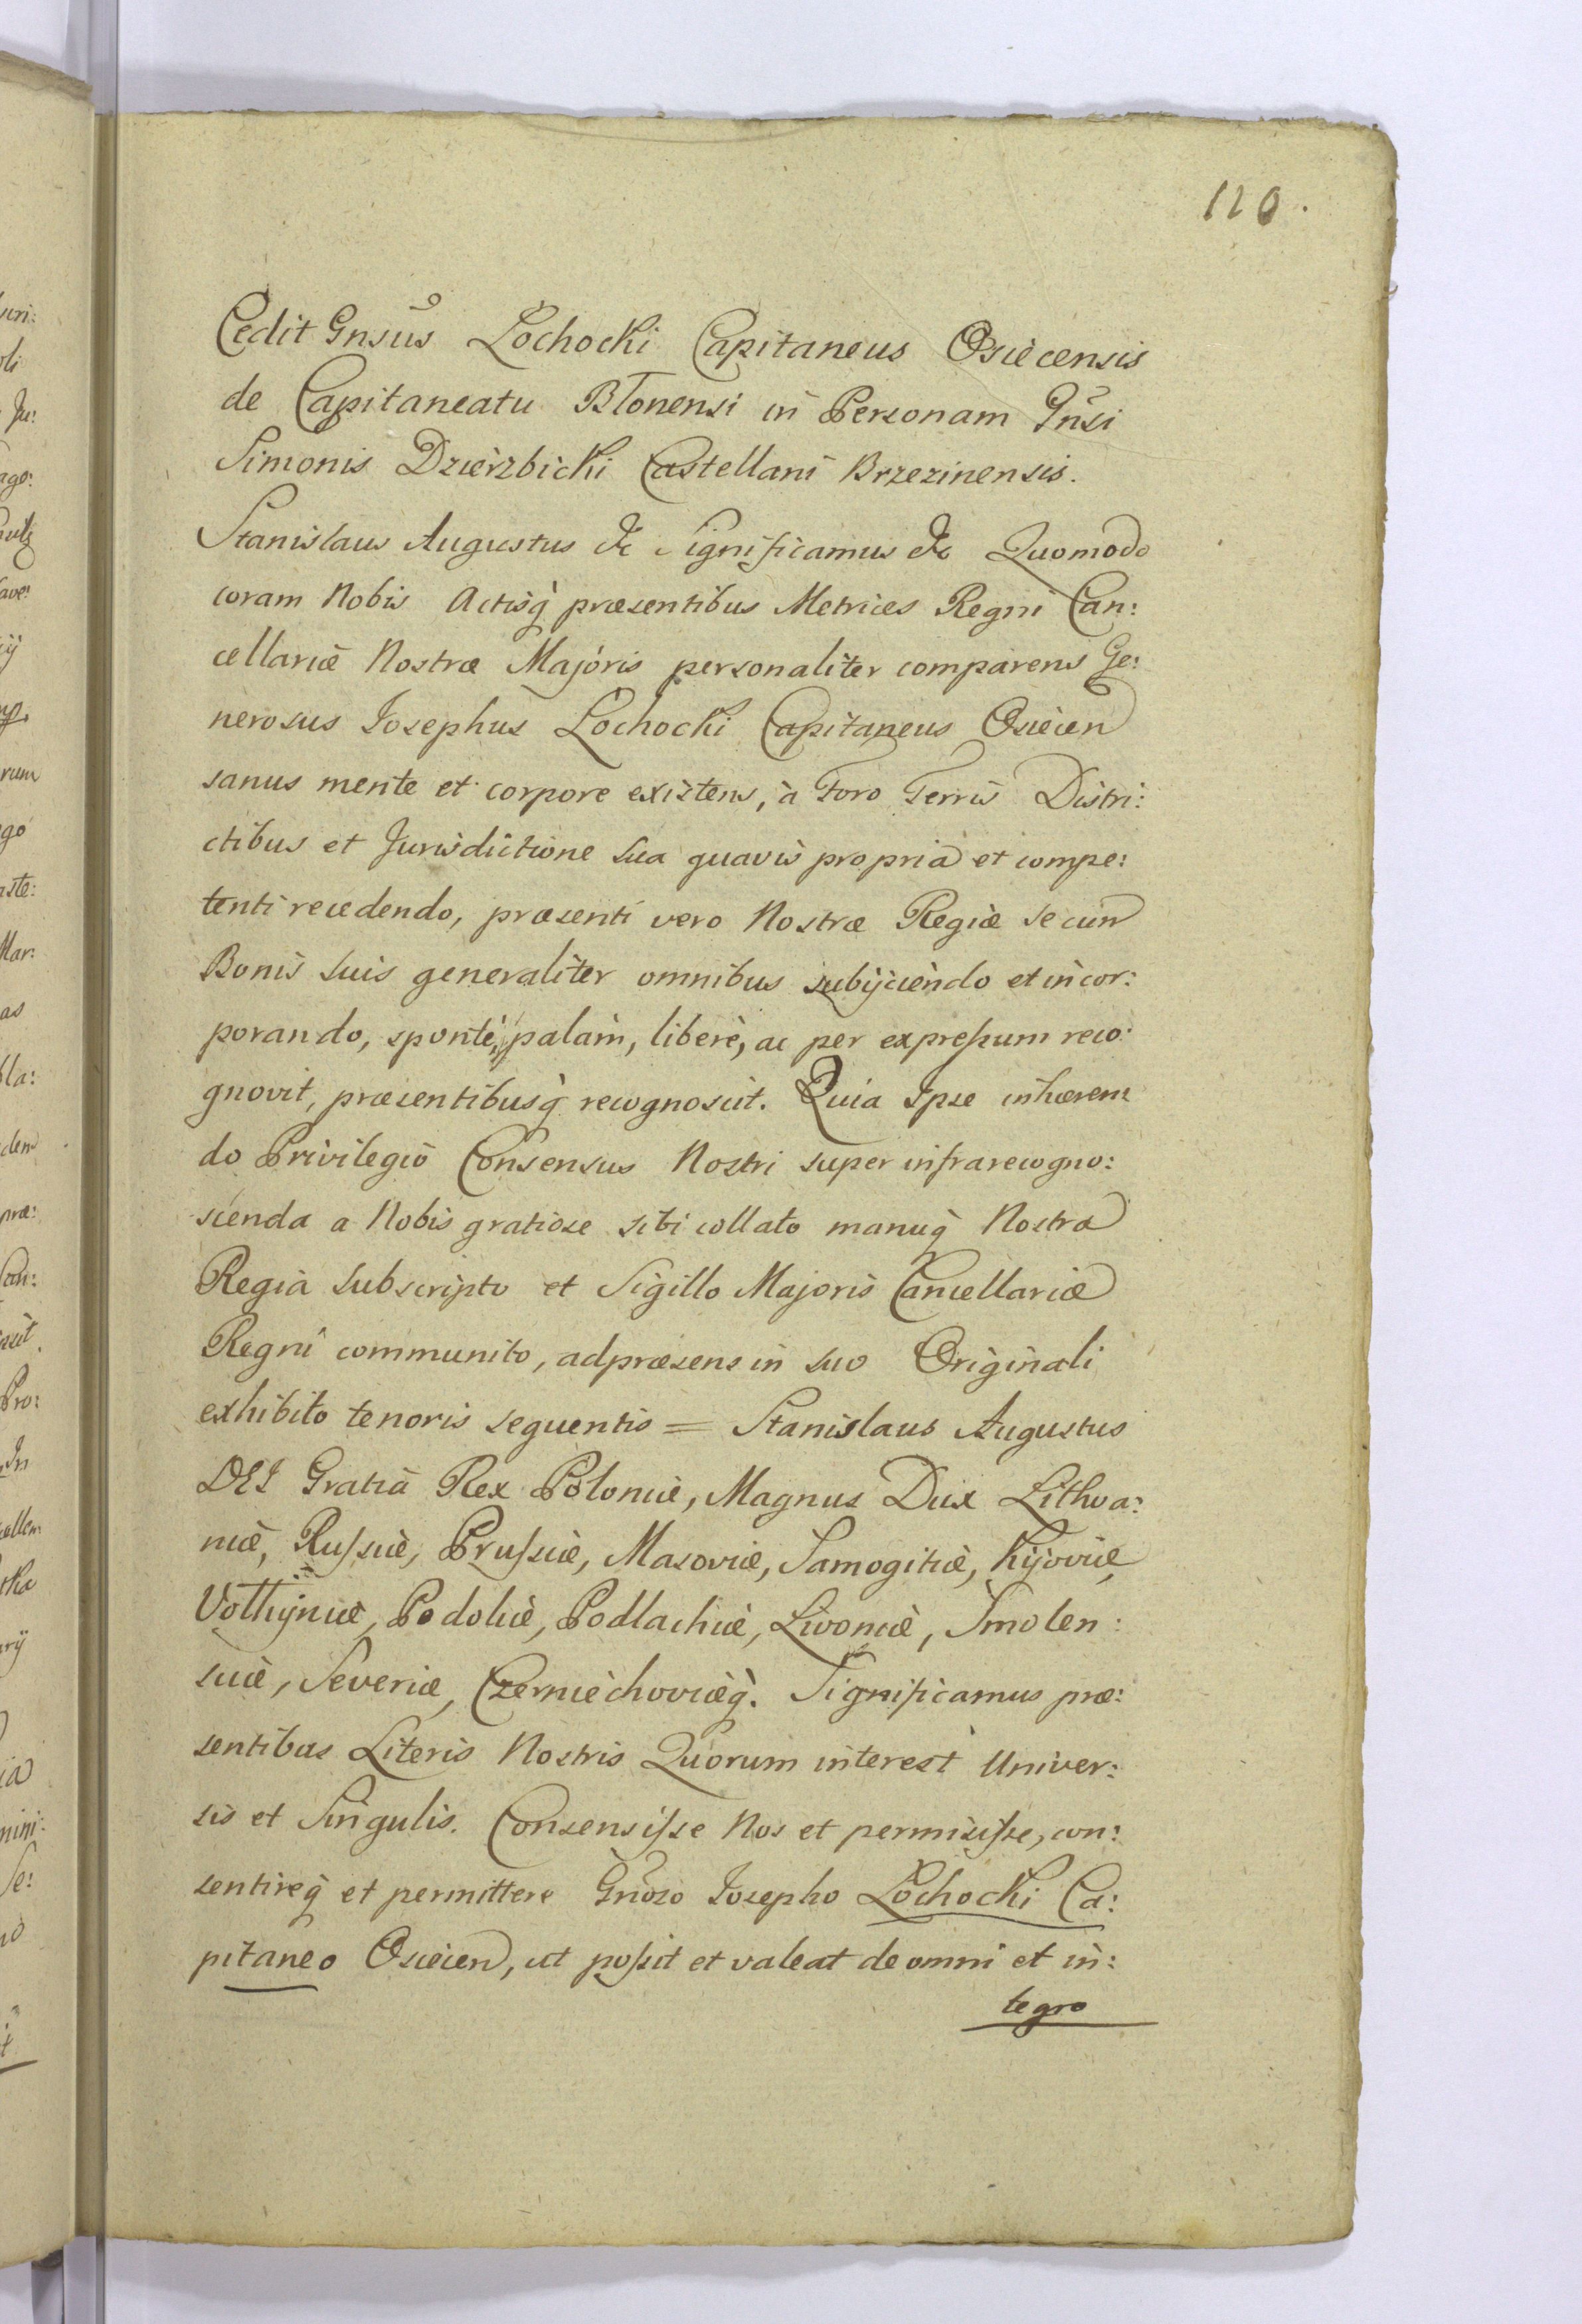 120.
Cedit Gnsus Łochocki Capitaneus Osiecensis
de Capitaneatu Błonensi in Personam Gnsi
Simonis Dzierzbicki Castellani Brzezinensis.
Stanislaus Augustus &c Significamus &c Quomodo
coram Nobis Actisq̀ præsentibus Metrices Regni Can:
cellariæ Nostræ Majoris personaliter comparens Ge:
nerosus Josephus Łochocki Capitaneus Osiecen
sanus mente et corpore existens, à Foro Terris Distri:
ctibus et Jurisdictione sua quavis propria et compe:
tenti recedendo, præsenti vero Nostræ Regiæ se cum
Bonis suis generaliter omnibus subijciendo et incor:
porando, spontè, palàm, liberè, ac per expreſsum reco:
gnovit, præsentibusq̀ recognoscit. Quia Ipse inhæren:
do Privilegio Consensus Nostri super infrarecogno:
scenda a Nobis gratiose sibi collato manuq̀ Nostra
Regia subscripto et Sigillo Majoris Cancellariæ
Regni communito, adpræsens in suo Originali
exhibito tenoris sequentis = Stanislaus Augustus
DEI Gratiâ Rex Poloniæ, Magnus Dux Lithva:
niæ, Ruſsiæ, Pruſsiæ, Masoviæ, Samogitiæ, Kijoviæ,
Volhyniæ, Podoliæ, Podlachiæ, Livoniæ, Smolen:
sciæ, Severiæ, Czerniechoviæq̀. Significamus præ:
sentibus Literis Nostris Quorum interest Univer:
sis et Singulis. Consensiſse Nos et permisiſse, con:
sentireq̀ et permittere Gnoso Josepho Łochocki Ca:
pitaneo Osiecen, ut poſsit et valeat de omni et in:
tegro